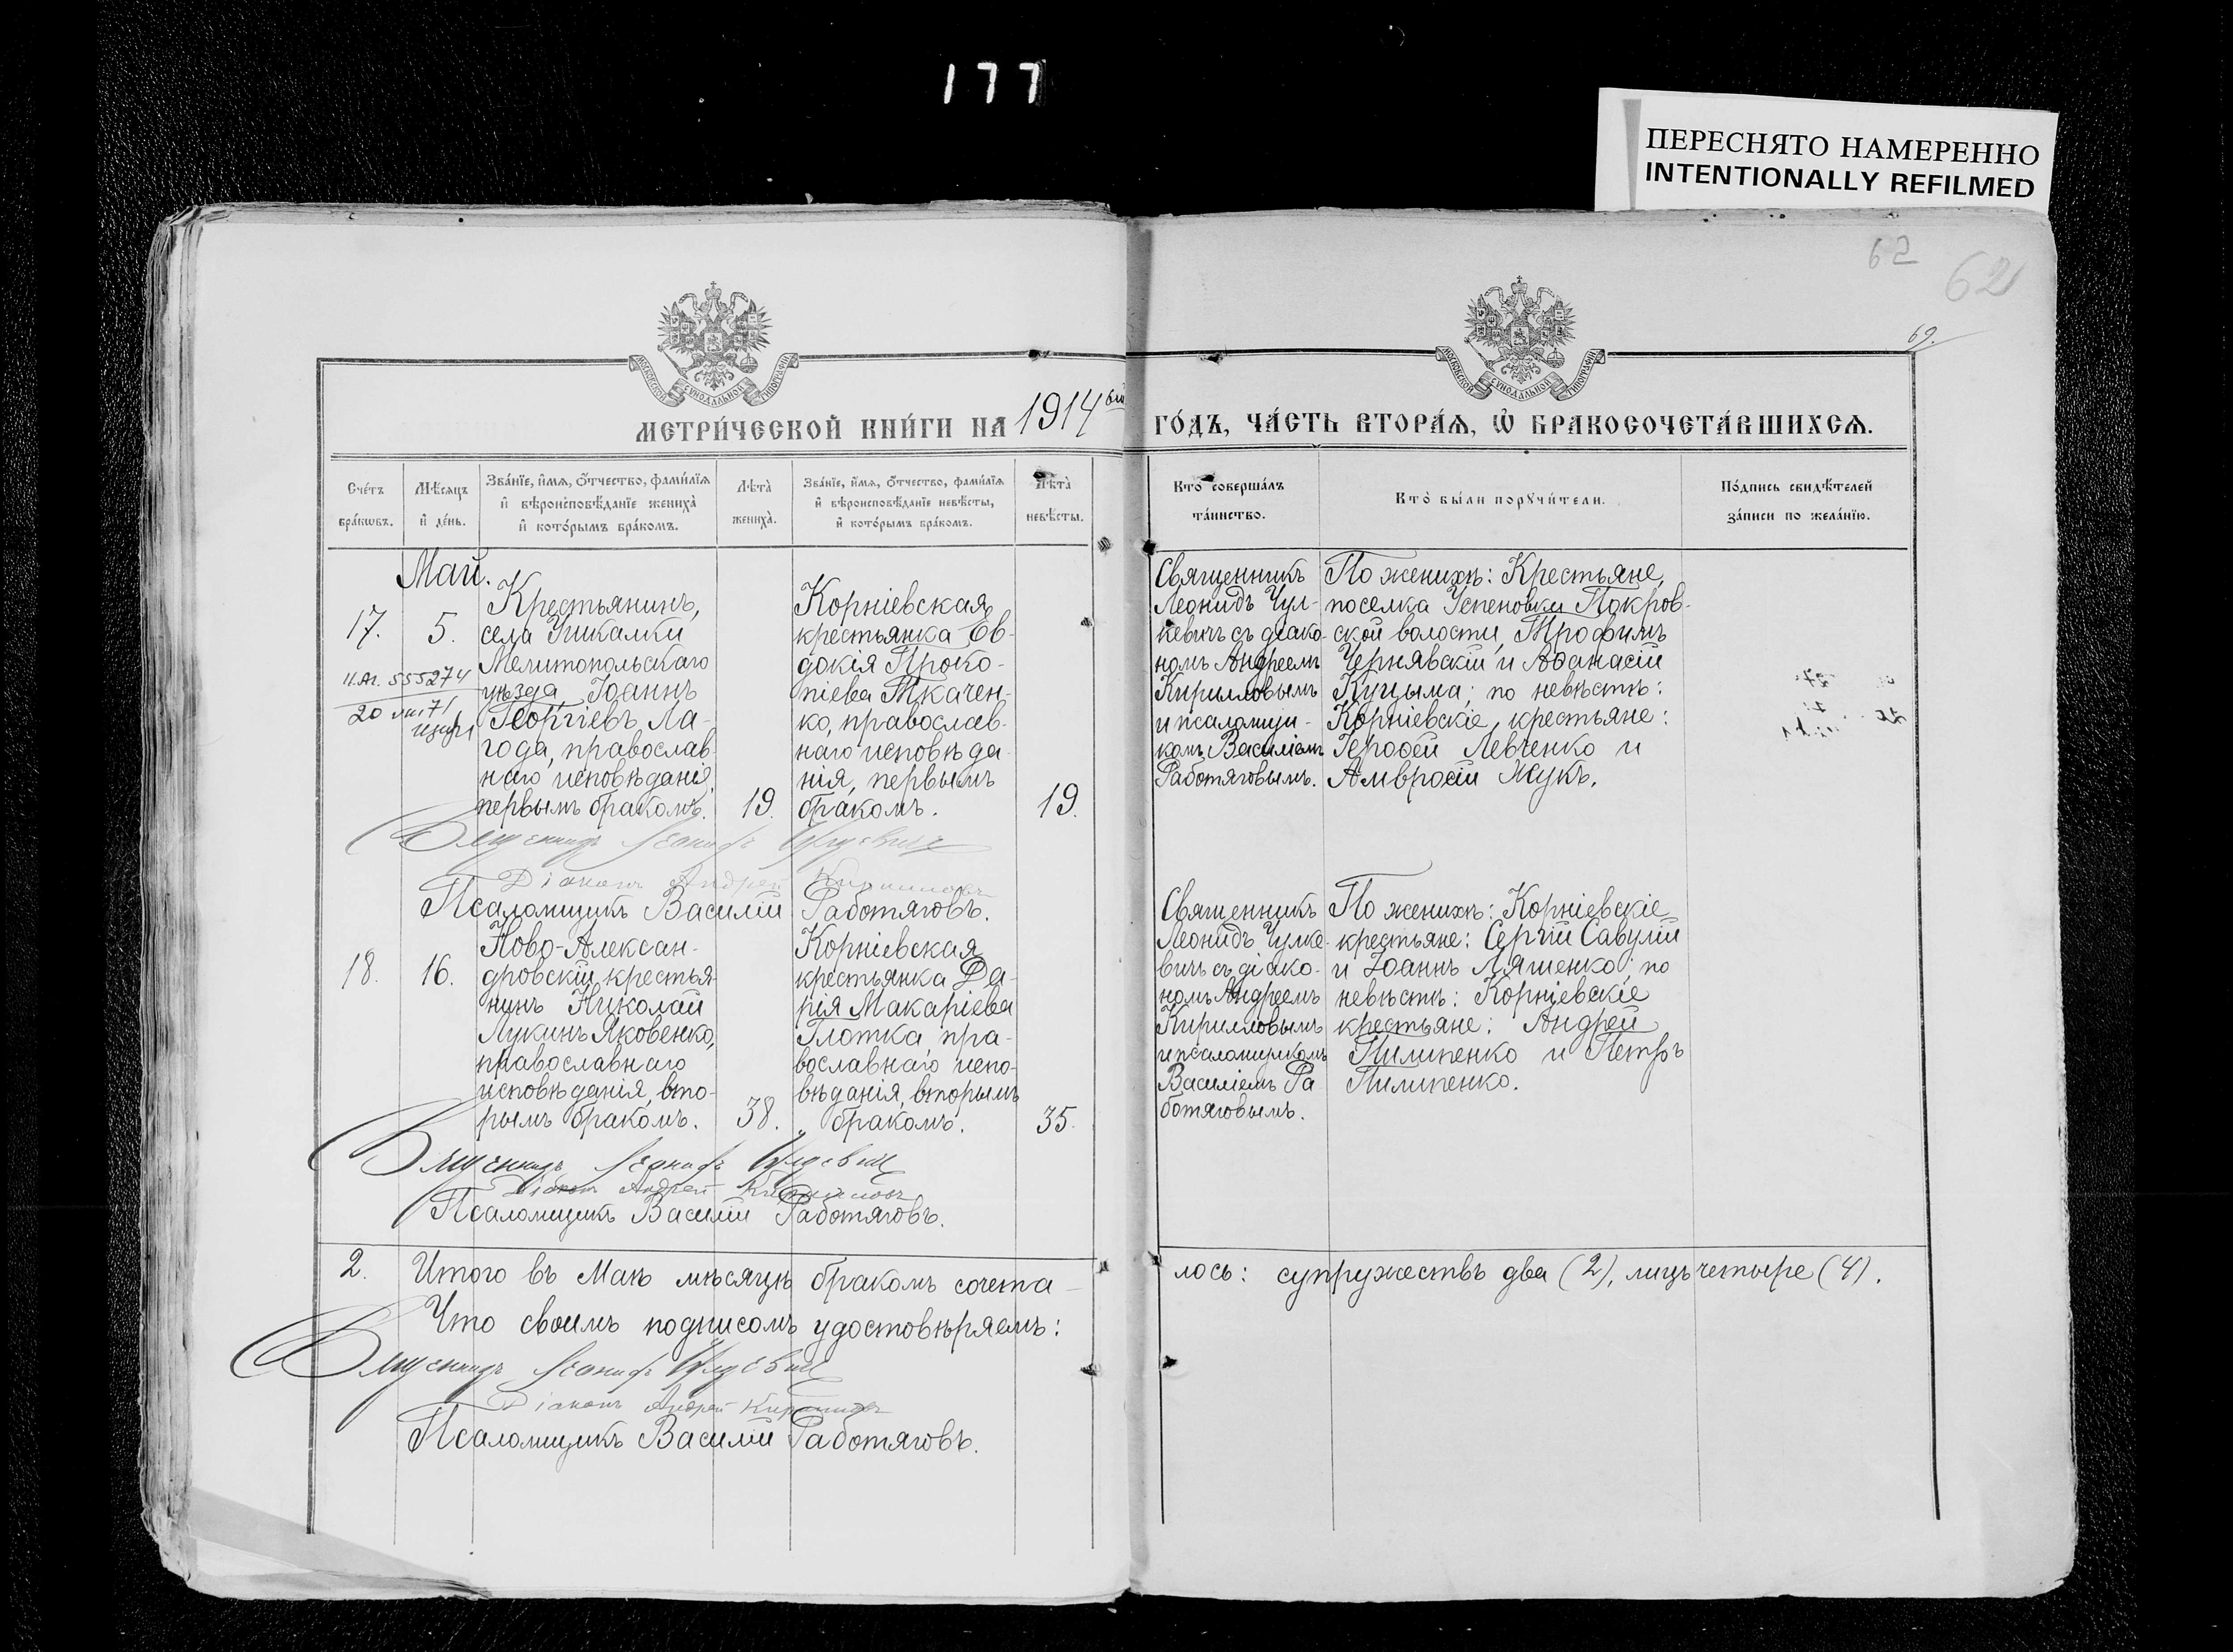 177
ПЕРЕСНЯТО НАМЕРЕННО
INTENTIONALLY REFILMED
62
62
69.
МОСКОВСКОЙ СѴНОДАЛЬНОЙ ТИПОГРАФІИ
МОСКОВСКОЙ СѴНОДАЛЬНОЙ ТИПОГРАФІИ
МЕТРИ́ЧЕСКОЙ КНИ́ГИ НА 1914 ый ГО́ДЪ, ЧА́СТЬ ВТОРА́Ѧ, Ѽ БРАКОСОЧЕТА́ВШИХСѦ.
Сче́тъ
бра́кѡвъ.
Мѣ́сѧцъ
и҆ де́нь.
Зва́нїе, и҆́мѧ, ѻ҆́тчество, фами́лїѧ
и҆ вѣроисповѣ́данїе жениха̀
и҆ кото́рымъ бра́комъ.
Лѣта̀
жениха̀.
Зва́нїе, и҆́мѧ, ѻ҆́тчество, фами́лїѧ
и҆ вѣроисповѣ́данїе невѣ́сты,
и҆ кото́рымъ бра́комъ.
Лѣта̀
невѣ́сты.
Кто̀ соверша́лъ
та́инство.
Кто̀ бы́ли порꙋчи́тели.
По́дпись свидѣ́телей
за́писи по жела́нїю.
Май.
17.
5.
II.Аг. 555274
20 VIII 71
Крестьянинъ,
села Чикалки
Мелитопольскаго
уѣзда, Іоаннъ
Георгіевъ Ла-
года, православ-
наго исповѣданія,
первымъ бракомъ.
19.
Корніевская
крестьянка Ев-
докія Проко-
піева Ткачен-
ко, православ-
наго исповѣда-
нія, первымъ
бракомъ.
19.
Священникъ
Леонидъ Чул-
кевичъ съ діако-
номъ Андреемъ
Кирилловымъ
и псаломщи-
комъ Василіемъ
Работяговымъ.
По женихѣ: Крестьяне,
поселка Успеновки Покров-
ской волости, Трофимъ
Чернявскій и Аѳанасій
Куцыма; по невѣстѣ:
Корніевскіе, крестьяне:
Іероѳей Левченко и
Амвросій Жукъ.
Священникъ Леонидъ Чулкевичъ
Діаконъ Андрей Кирилловъ
Псаломщикъ Василій Работяговъ.
18.
16.
Ново-Алексан-
дровскій крестья-
нинъ Николай
Лукинъ Яковенко,
православнаго
исповѣданія, вто-
рымъ бракомъ.
38.
Корніевская
крестьянка Да-
рія Макаріева
Глотка, пра-
вославнаго испо-
вѣданія, вторымъ
бракомъ.
35.
Священникъ
Леонидъ Чулке-
вичъ съ діако-
номъ Андреемъ
Кирилловымъ
и псаломщикомъ
Василіемъ Ра
ботяговымъ.
По женихѣ: Корніевскіе
крестьяне: Сергій Савулій
и Іоаннъ Ляшенко; по
невѣстѣ: Корніевскіе
крестьяне: Андрей
Пилипенко и Петръ
Пилипенко.
Священникъ Леонидъ Чулкевичъ
Діаконъ Андрей Кирилловъ
Псаломщикъ Василій Работяговъ.
2. Итого въ Маѣ мѣсяцѣ бракомъ сочета-лось: супружествъ два (2), лицъ четыре (4).
Что своимъ подписомъ удостовѣряемъ:
Священникъ Леонидъ Чулкевичъ
Діаконъ Андрей Кирилловъ
Псаломщикъ Василій Работяговъ.